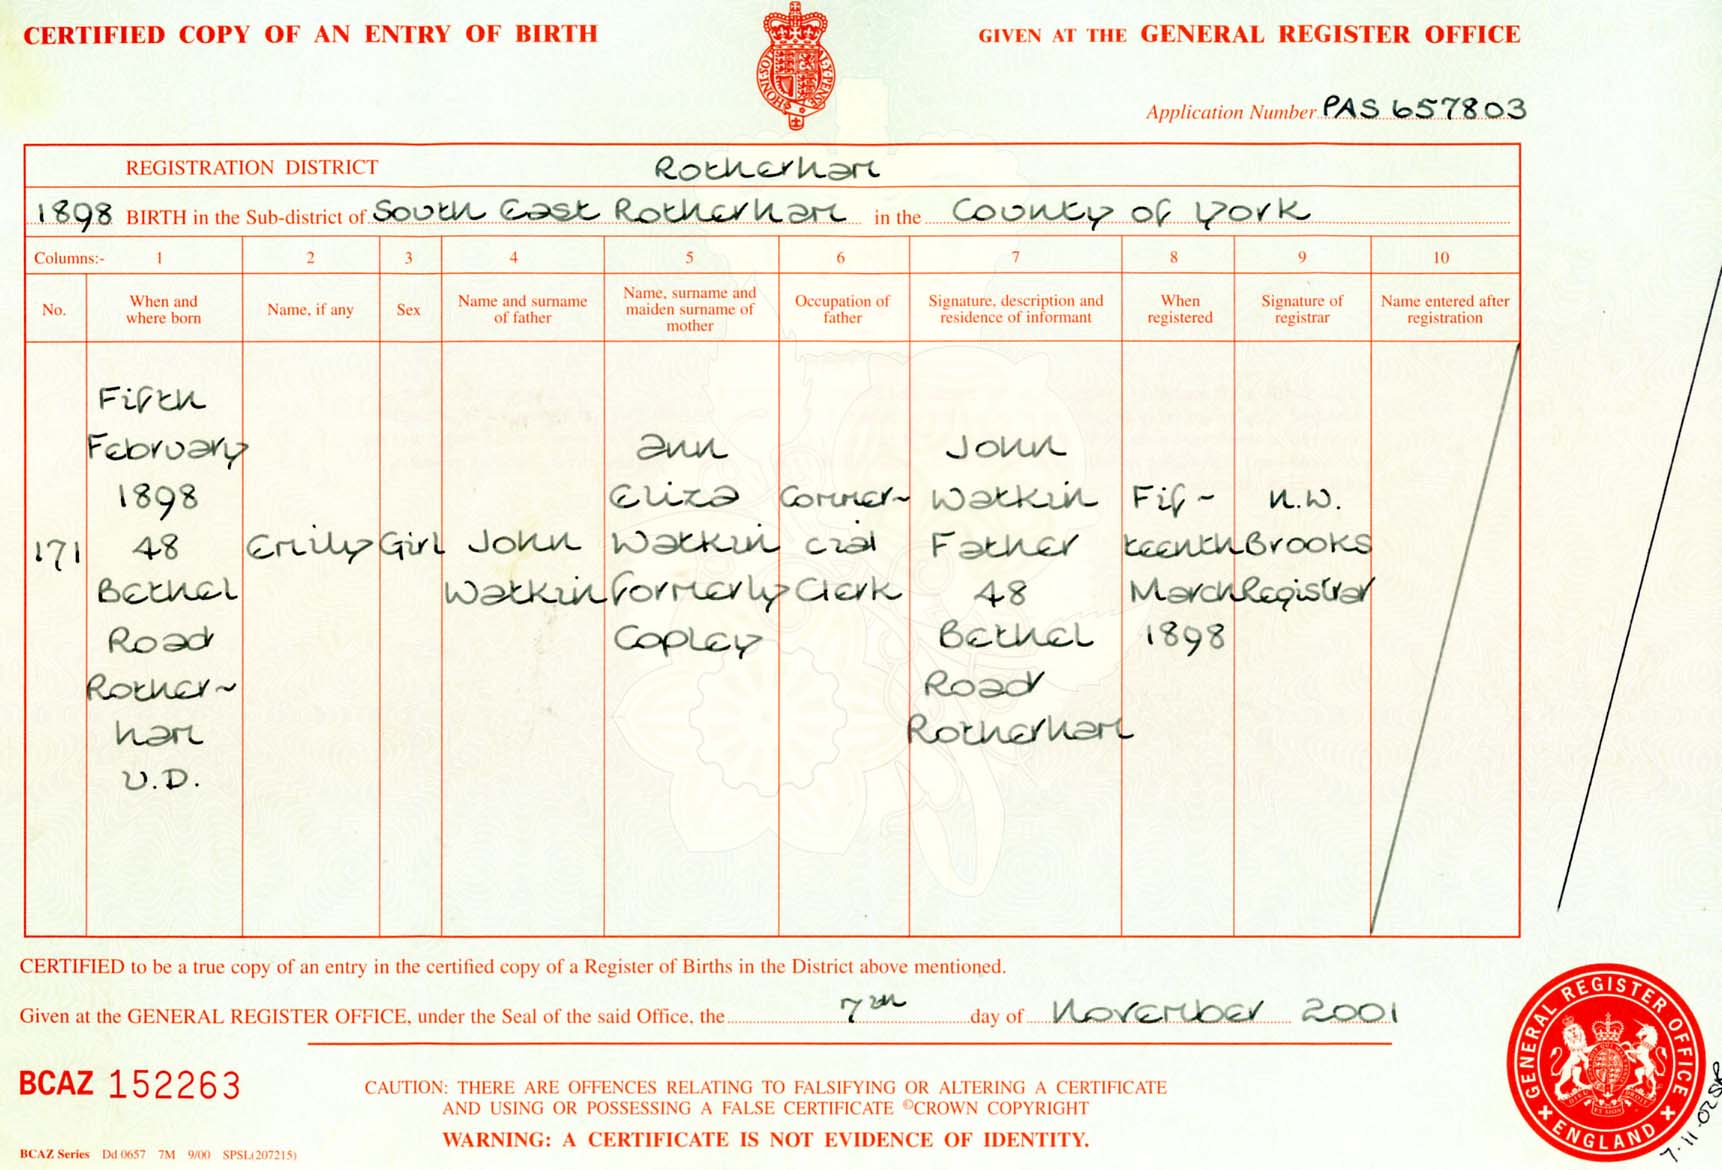 CERTIFIED COPY OF AN ENTRY OF BIRTH
GIVEN AT THE GENERAL REGISTER OFFICE
HONI SOIT QUI MAL Y PENSE
Application Number PAS 657803
REGISTRATION DISTRICT Rotherham
1898 BIRTH in the Sub-district of South East Rotherham in the County of York
Columns:- 1 2 3 4 5 6 7 8 9 10
No.
When and
where born
Name, if any
Sex
Name and surname
of father
Name, surname and
maiden surname of
mother
Occupation of
father
Signature, description and
residence of informant
When
registered
Signature of
registrar
Name entered after
registration
171
Fifth
February
1898
48
Bethel
Road
Rother~
ham
U.D.
Emily
Girl
John
Watkin
Ann
Eliza
Watkin
formerly
Copley
Commer~
cial
Clerk
John
Watkin
Father
48
Bethel
Road
Rotherham
Fif~
teenth
March
1898
N.W.
Brooks
Registrar
CERTIFIED to be a true copy of an entry in the certified copy of a Register of Births in the District above mentioned.
Given at the GENERAL REGISTER OFFICE, under the Seal of the said Office, the 7th day of November 2001
BCAZ 152263
CAUTION: THERE ARE OFFENCES RELATING TO FALSIFYING OR ALTERING A CERTIFICATE
AND USING OR POSSESSING A FALSE CERTIFICATE ©CROWN COPYRIGHT
WARNING: A CERTIFICATE IS NOT EVIDENCE OF IDENTITY.
BCAZ Series Dd 0657 7M 9/00 SPSL(207215)
GENERAL REGISTER OFFICE
ENGLAND